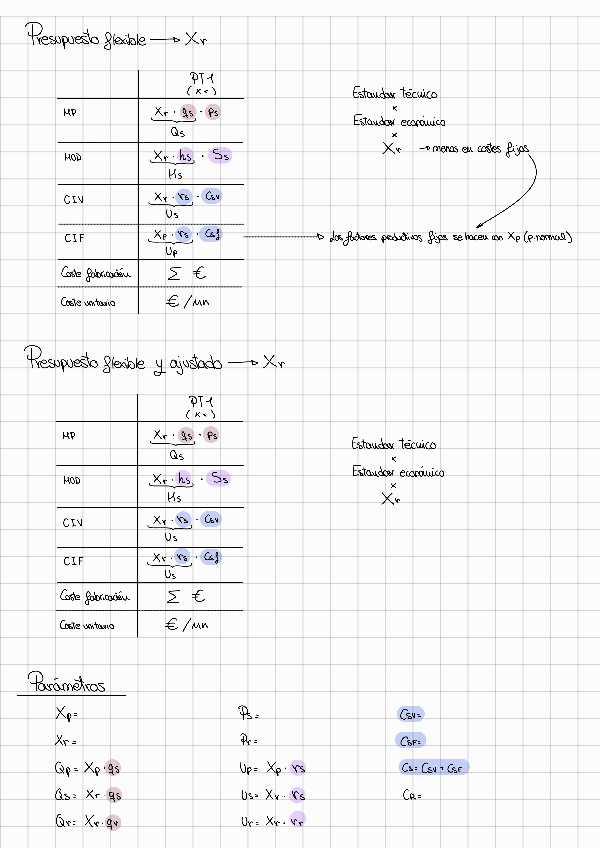 Presupuesto flexible → Xr
PT1
(Xr)
MP Xr · qs · Ps
Qs
MOD Xr · hs · Ss
Hs
CIV Xr · rs · Csv
Us
CIF Xp · rs · Csf
Up
Coste fabricación Σ €
Coste unitario €/un
Estandar técnico
x
Estandar económico
x
Xr → menos en costes fijos
Los factores productivos fijos se hacen con Xp (p. normal)
Presupuesto flexible y ajustado → Xr
PT1
(Xr)
MP Xr · qs · Ps
Qs
MOD Xr · hs · Ss
Hs
CIV Xr · rs · Csv
Us
CIF Xr · rs · Csf
Us
Coste fabricación Σ €
Coste unitario €/un
Estandar técnico
x
Estandar económico
x
Xr
Parámetros
Xp =
Xr =
Qp = Xp · qs
Qs = Xr · qs
Qr = Xr · qr
Ps =
Pr =
Up = Xp · rs
Us = Xr · rs
Ur = Xr · rr
Csv =
CSF =
Cs = Csv + CSF
CR =